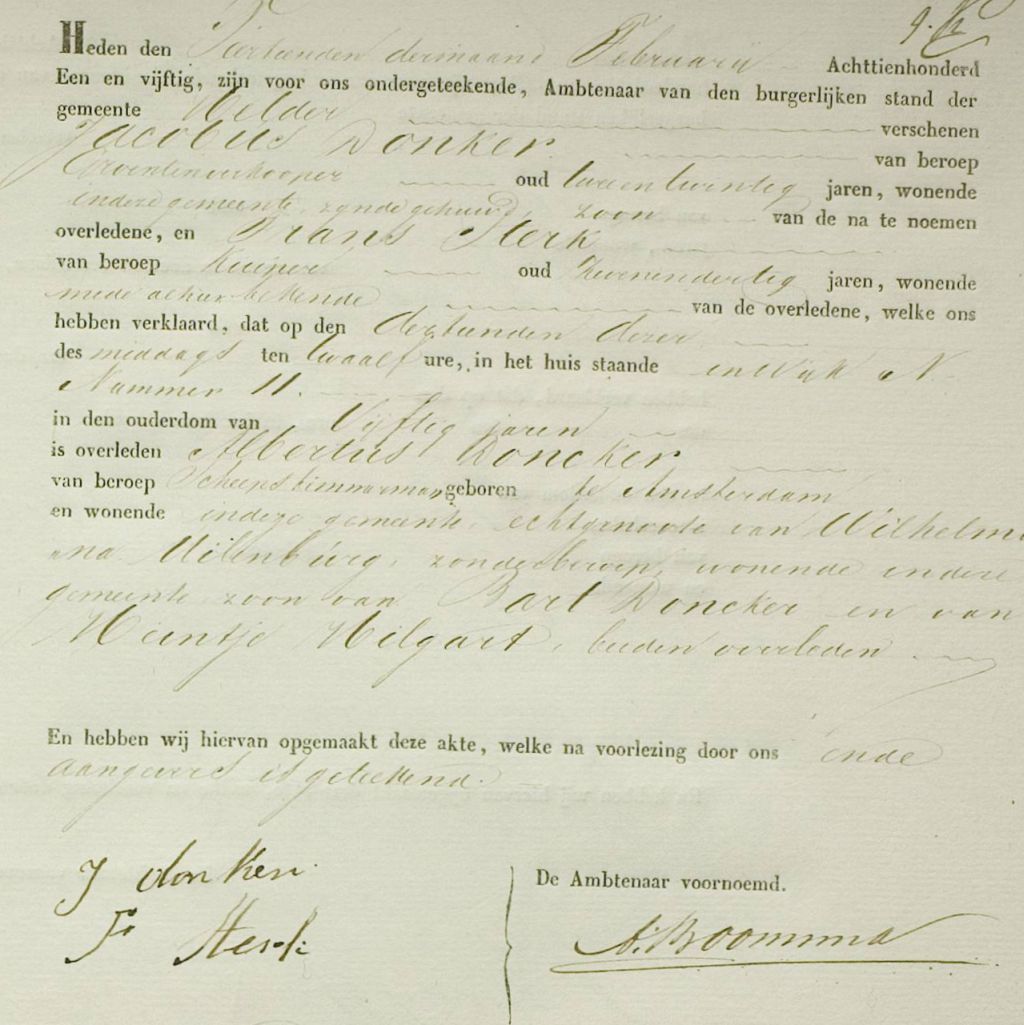 Heden den Veertienden dermaand Februarij Achttienhonderd
Een en vijftig, zijn voor ons ondergeteekende, Ambtenaar van den burgerlijken stand der
gemeente Helder verschenen
Jacobus Donker van beroep
Groentenverkooper oud twee en twintig jaren, wonende
indeze gemeente, zynde gehuwd, zoon van de na te noemen
overledene, en Frans Sterk
van beroep Kuiper oud Zevenendertig jaren, wonende
mede alhier bekende van de overledene, welke ons
hebben verklaard, dat op den dertienden dezer
des middags ten twaalf ure, in het huis staande in Wijk N
Nummer 11.
in den ouderdom van Vijftig jaren
is overleden Albertus Doncker
van beroep Scheepstimmerman geboren te Amsterdam
en wonende indeze gemeente, echtgenoote van Wilhelmi
na Uilenburg, zonder beroep, wonende indeze
gemeente zoon van Bart Doncker en van
Heintje Hilgart, beiden overleden
En hebben wij hiervan opgemaakt deze akte, welke na voorlezing door ons ende
aangevers is geteekend.
J donker
F Sterk
De Ambtenaar voornoemd.
A. Boomsma